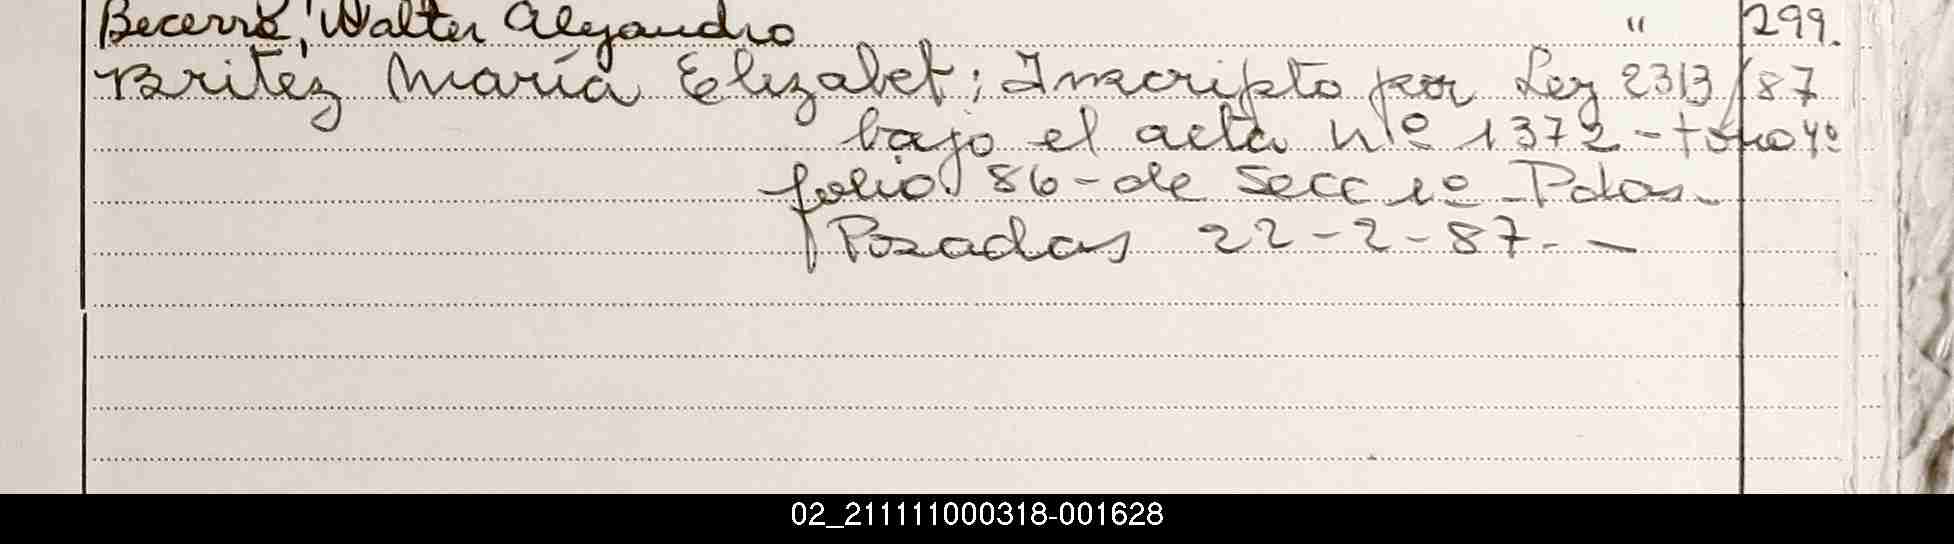 Becerro, Walter Alejandro " 299.
Britez María Elizabet; Inscripto por Ley 2313/87
bajo el acta nº 1372 - tomo 4º
folio 86 - de Secc 1º - Pdas -
Posadas 22-2-87. -
02_211111000318-001628